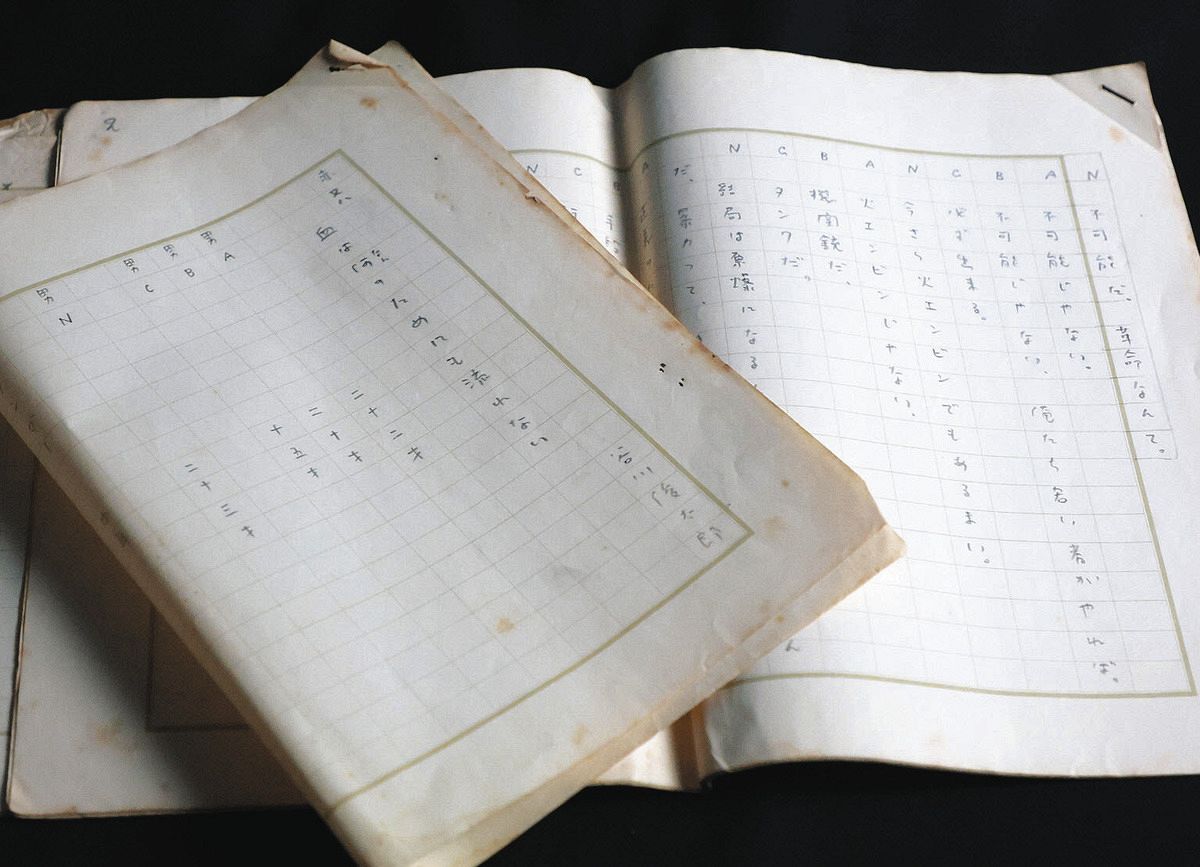 血は
のためにも流れない
谷川俊太郎
男A 二十二才
男B 二十才
男C 十五才
男N 二十三才
N 不可能だ。革命なんて。
A 不可能じゃない。俺たち若い者がやれば。
B 不可能じゃない、
C 必ず出来る。
N 今さら火エンビンでもあるまい。
A 火エンビンじゃない、
B 機関銃だ、
C タンクだ。
N 結局は原爆になる
だ、暴力って、